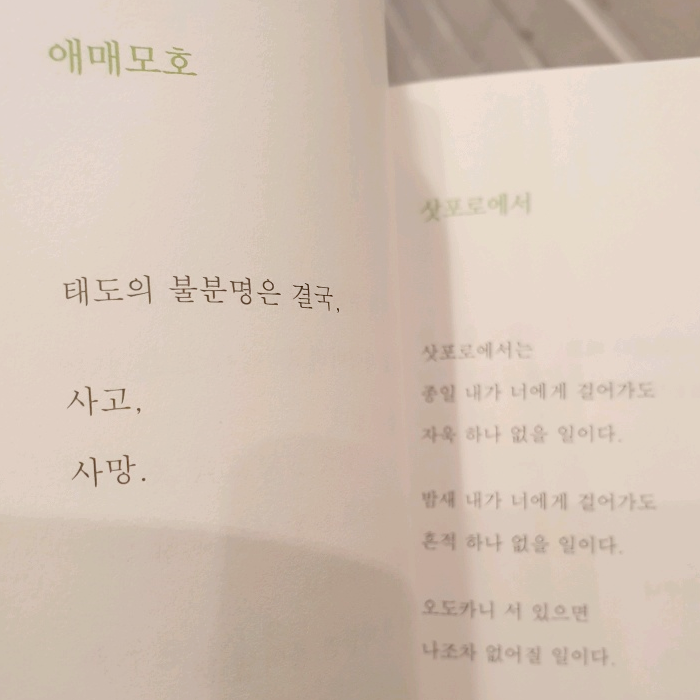 애매모호
태도의 불분명은 결국,
사고,
사망.
삿포로에서
삿포로에서는
종일 내가 너에게 걸어가도
자욱 하나 없을 일이다.
밤새 내가 너에게 걸어가도
흔적 하나 없을 일이다.
오도카니 서 있으면
나조차 없어질 일이다.